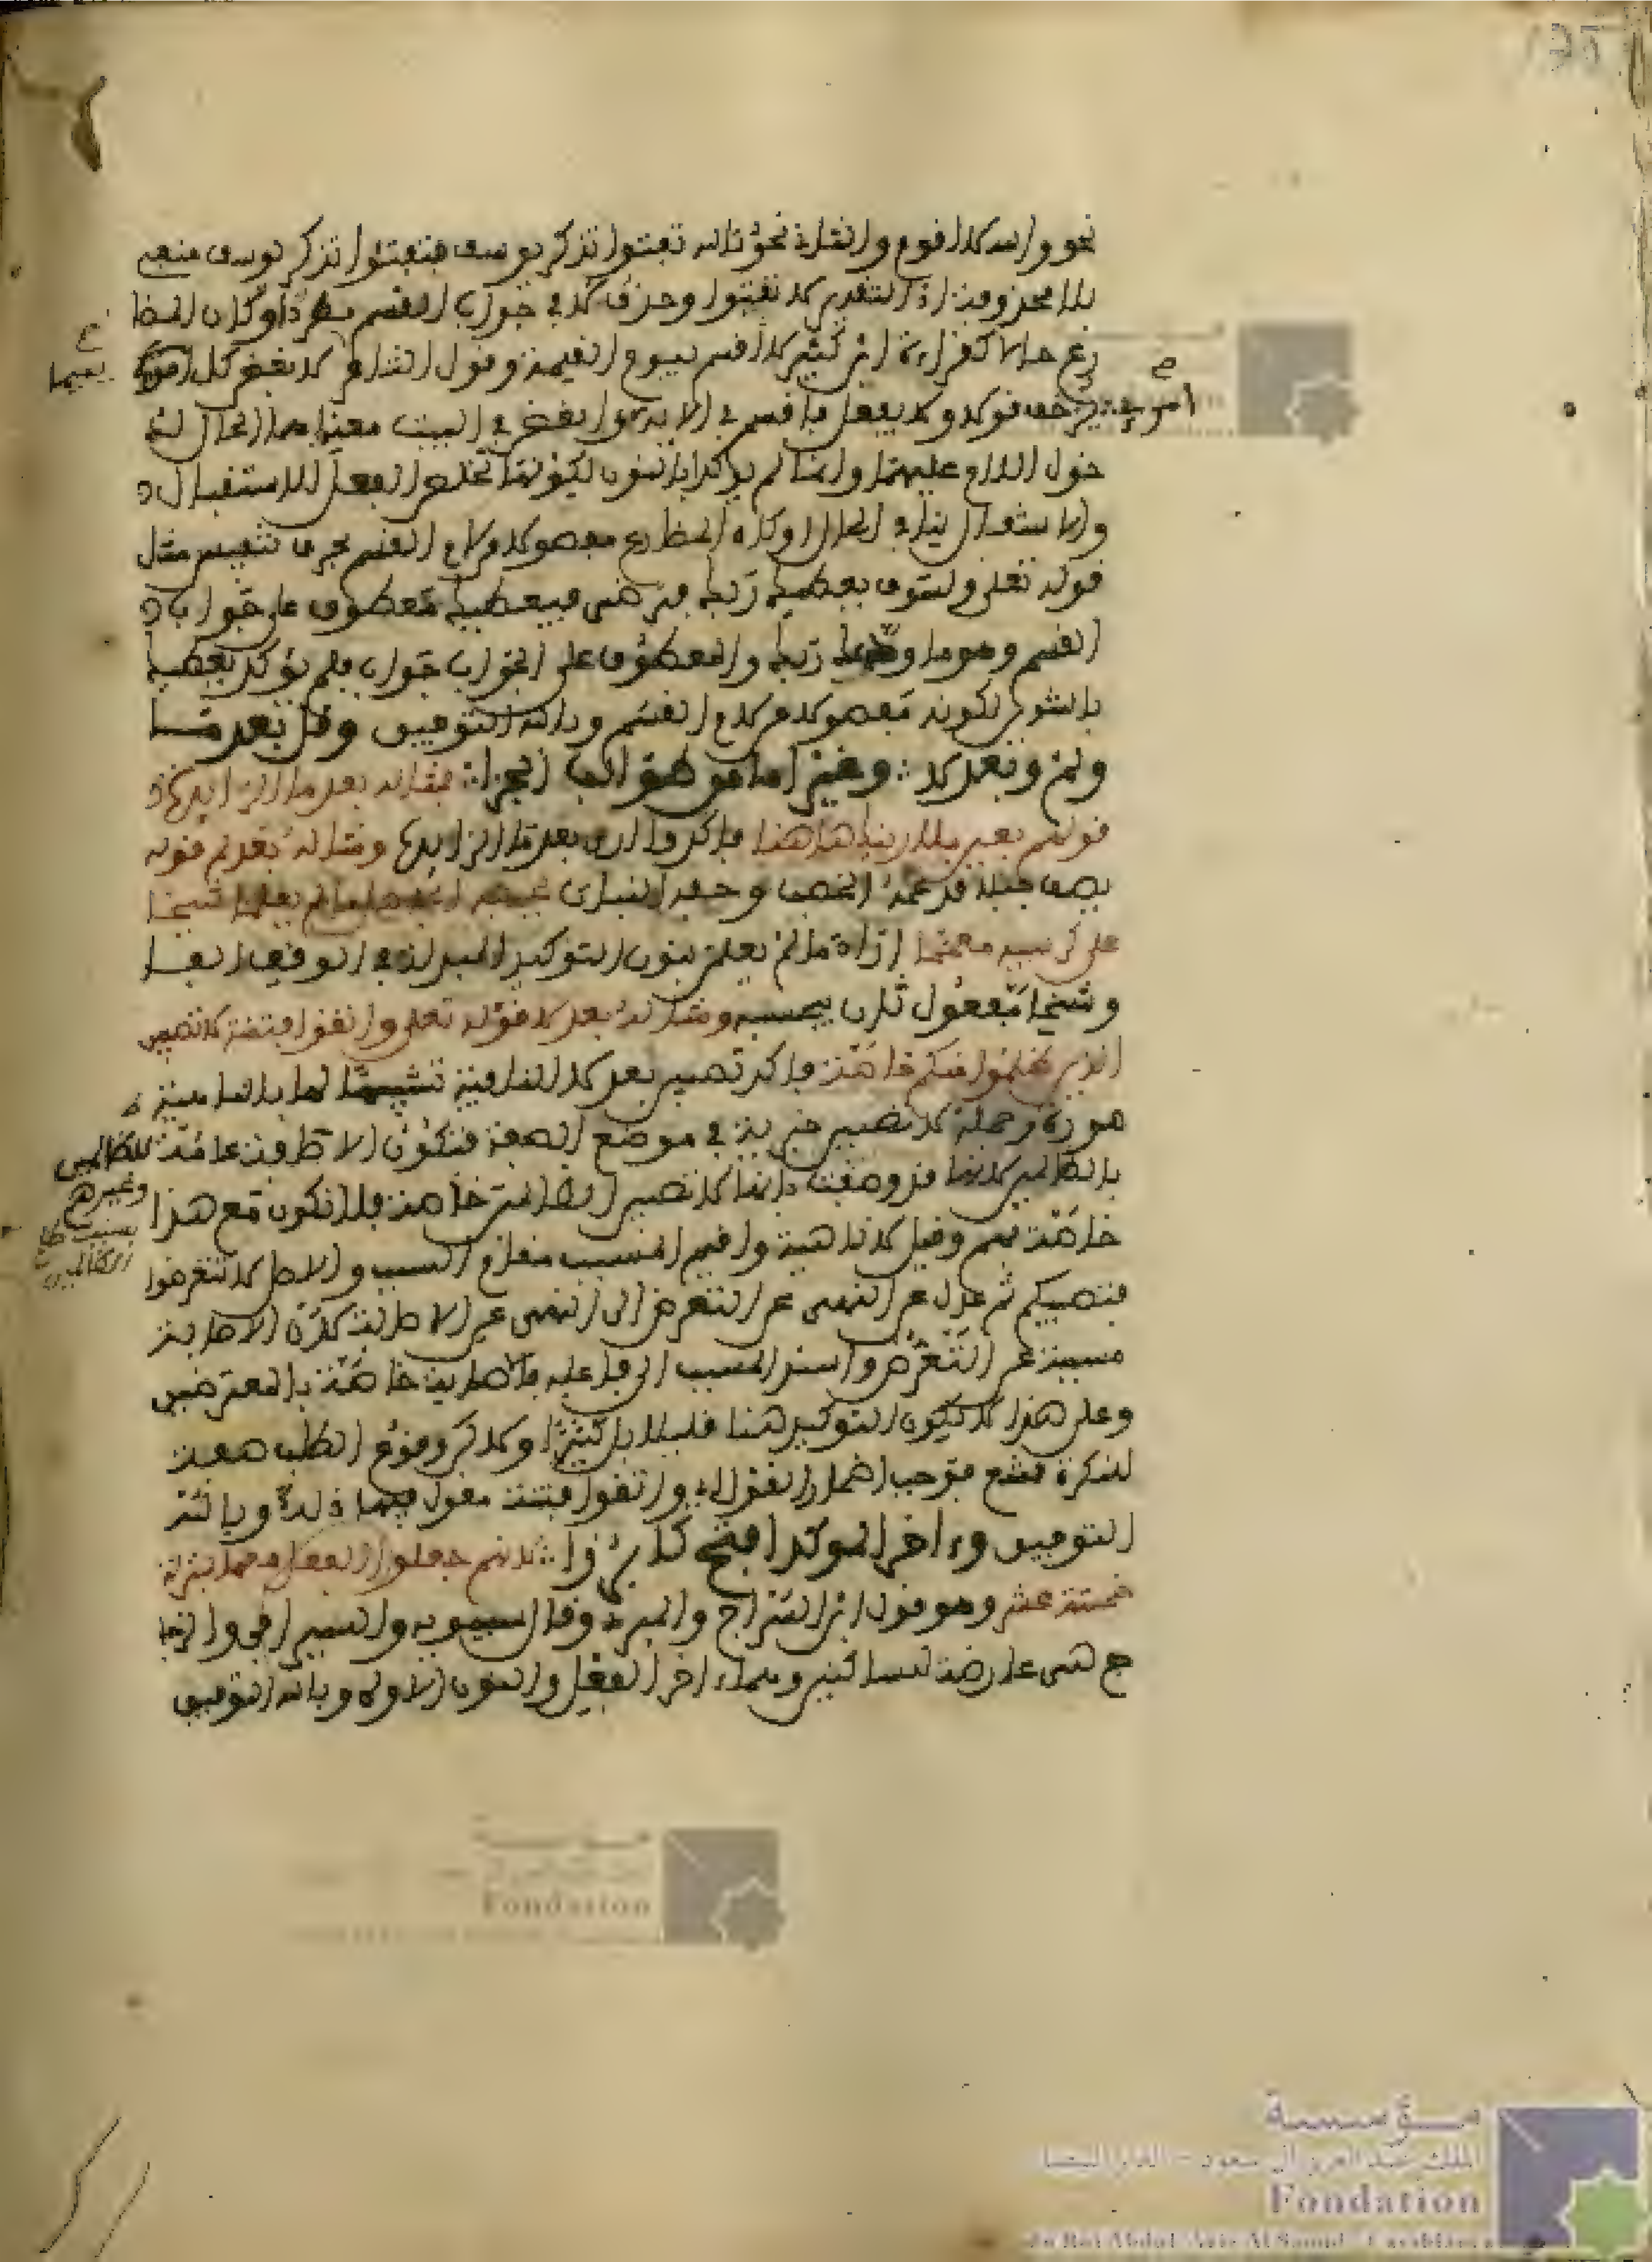 نحو والله لا اقوم والثاني نحو تالله تفتؤا تذكر يوسف فتفتؤا تذكر يوسف منفي
بلا محذوفة اذ التقدير لا تفتؤا وحذف لا في جواب القسم مطرد او كان المضا
رع حالا كقراءة ابن كثير لاقسم بيوم القيمة وقول الشاعر لابغض كل امرئ
يزخرف قولا ولا يفعل فاقسم في الاية وابغض في البيت معناهما الحال لد
خول اللام عليهما وانما لم يؤكدا بالنون لكونها تخلص الفعل للاستقبال
والاستقبال ينافي الحال او كان المضارع مفصولا من لام القسم بحرف تنفيس مثل
قوله تعلى ولسوف يعطيك ربك فترضى فيعطيك معطوف على جواب
القسم وهو ما ودعك ربك والمعطوف على الجواب جواب فلم يؤكد يعطيك
بالنون لكونه مفصولا من لام القسم وبالله التوفيق وقل بعد ما
ولم وبعد لا وغير اما من طوالب الجزا فمثاله بعد ما الزايدة
قولهم بعين ما ارينك هاهنا فاكد وا ارى بعد ما الزايدة ومثاله بعد لم قوله
يصف جبلا قد عمه الخصب وحفه النبات يحسبه الجاهل ما لم يعلما شيخا
على كرسيه معمما اراد ما لم يعلمن بنون التوكيد المبدلة في الوقف الفا
وشيخا مفعول ثان بيحسبه ومثاله بعد لا قوله تعلى واتقوا فتنة لا تصيبن
الذين ظلموا منكم خاصة فاكد تصيب بعد لا النافية تشبيها لها بالناهية
صورة وجملة لا تصيبن خبرية في موضع الصفة فتكون الاصابة عامة للظالمين
وغيرهم
بالظالمين لانها قد وصفت بانها لا تصيب الظالمين خاصة فلا تكون مع هذا
خاصة بهم وقيل لا ناهية واقيم المسبب مقام السبب والاصل لا تتعرضوا
فتصيبكم ثم عدل عن النهي عن التعرض الى النهي عن الاصابة لان الاصابة
مسببة عن التعرض واسند المسبب الى فاعله فالاصابة خاصة بالمتعرضين
وعلى هذا لا يكون التوكيد هنا قليلا بل كثيرا ولاكن وقوع الطلب صفة
للنكرة ممتنع فوجب اضمار القول اي واتقوا فتنة مقول فيها ذلك وبالله
التوفيق وءاخر الموكد افتح كابرزا لانهم جعلوا الفعل معها بمنزلة
خمسة عشر وهو قول ابن السراج والمبرد وقال سيبويه والسيرافي والزجا
ج هي عارضة للساكنين وهما ءاخر الفعل والنون الاولى وبالله التوفيق
مؤسسة
الملك عبد العزيز آل سعود - الدار البيضاء
Fondation
du Roi Abdul-Aziz Al Saoud - Casablanca
Fondation